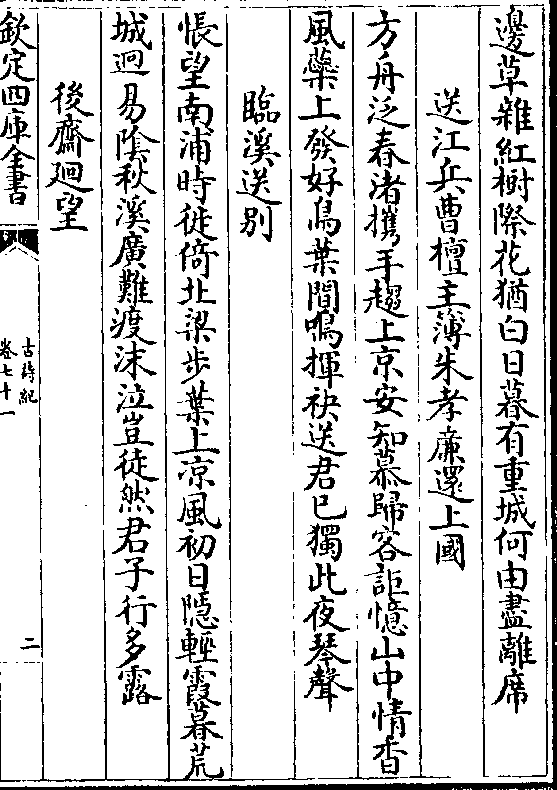 邊草雜紅樹際花猶白日暮有重城何由盡離席
送江兵曹檀主簿朱孝廉還上國
方舟泛春渚攜手趨上京安知慕歸客詎憶山中情香
風蘂上發好鳥葉間鳴揮袂送君已獨此夜琴聲
臨溪送別
悵望南浦時徙倚北梁步葉上涼風初日隱輕霞暮荒
城迥易陰秋溪廣難渡沫泣豈徒然君子行多露
後齋迴望
欽定四庫全書
古詩紀
卷七十一
二